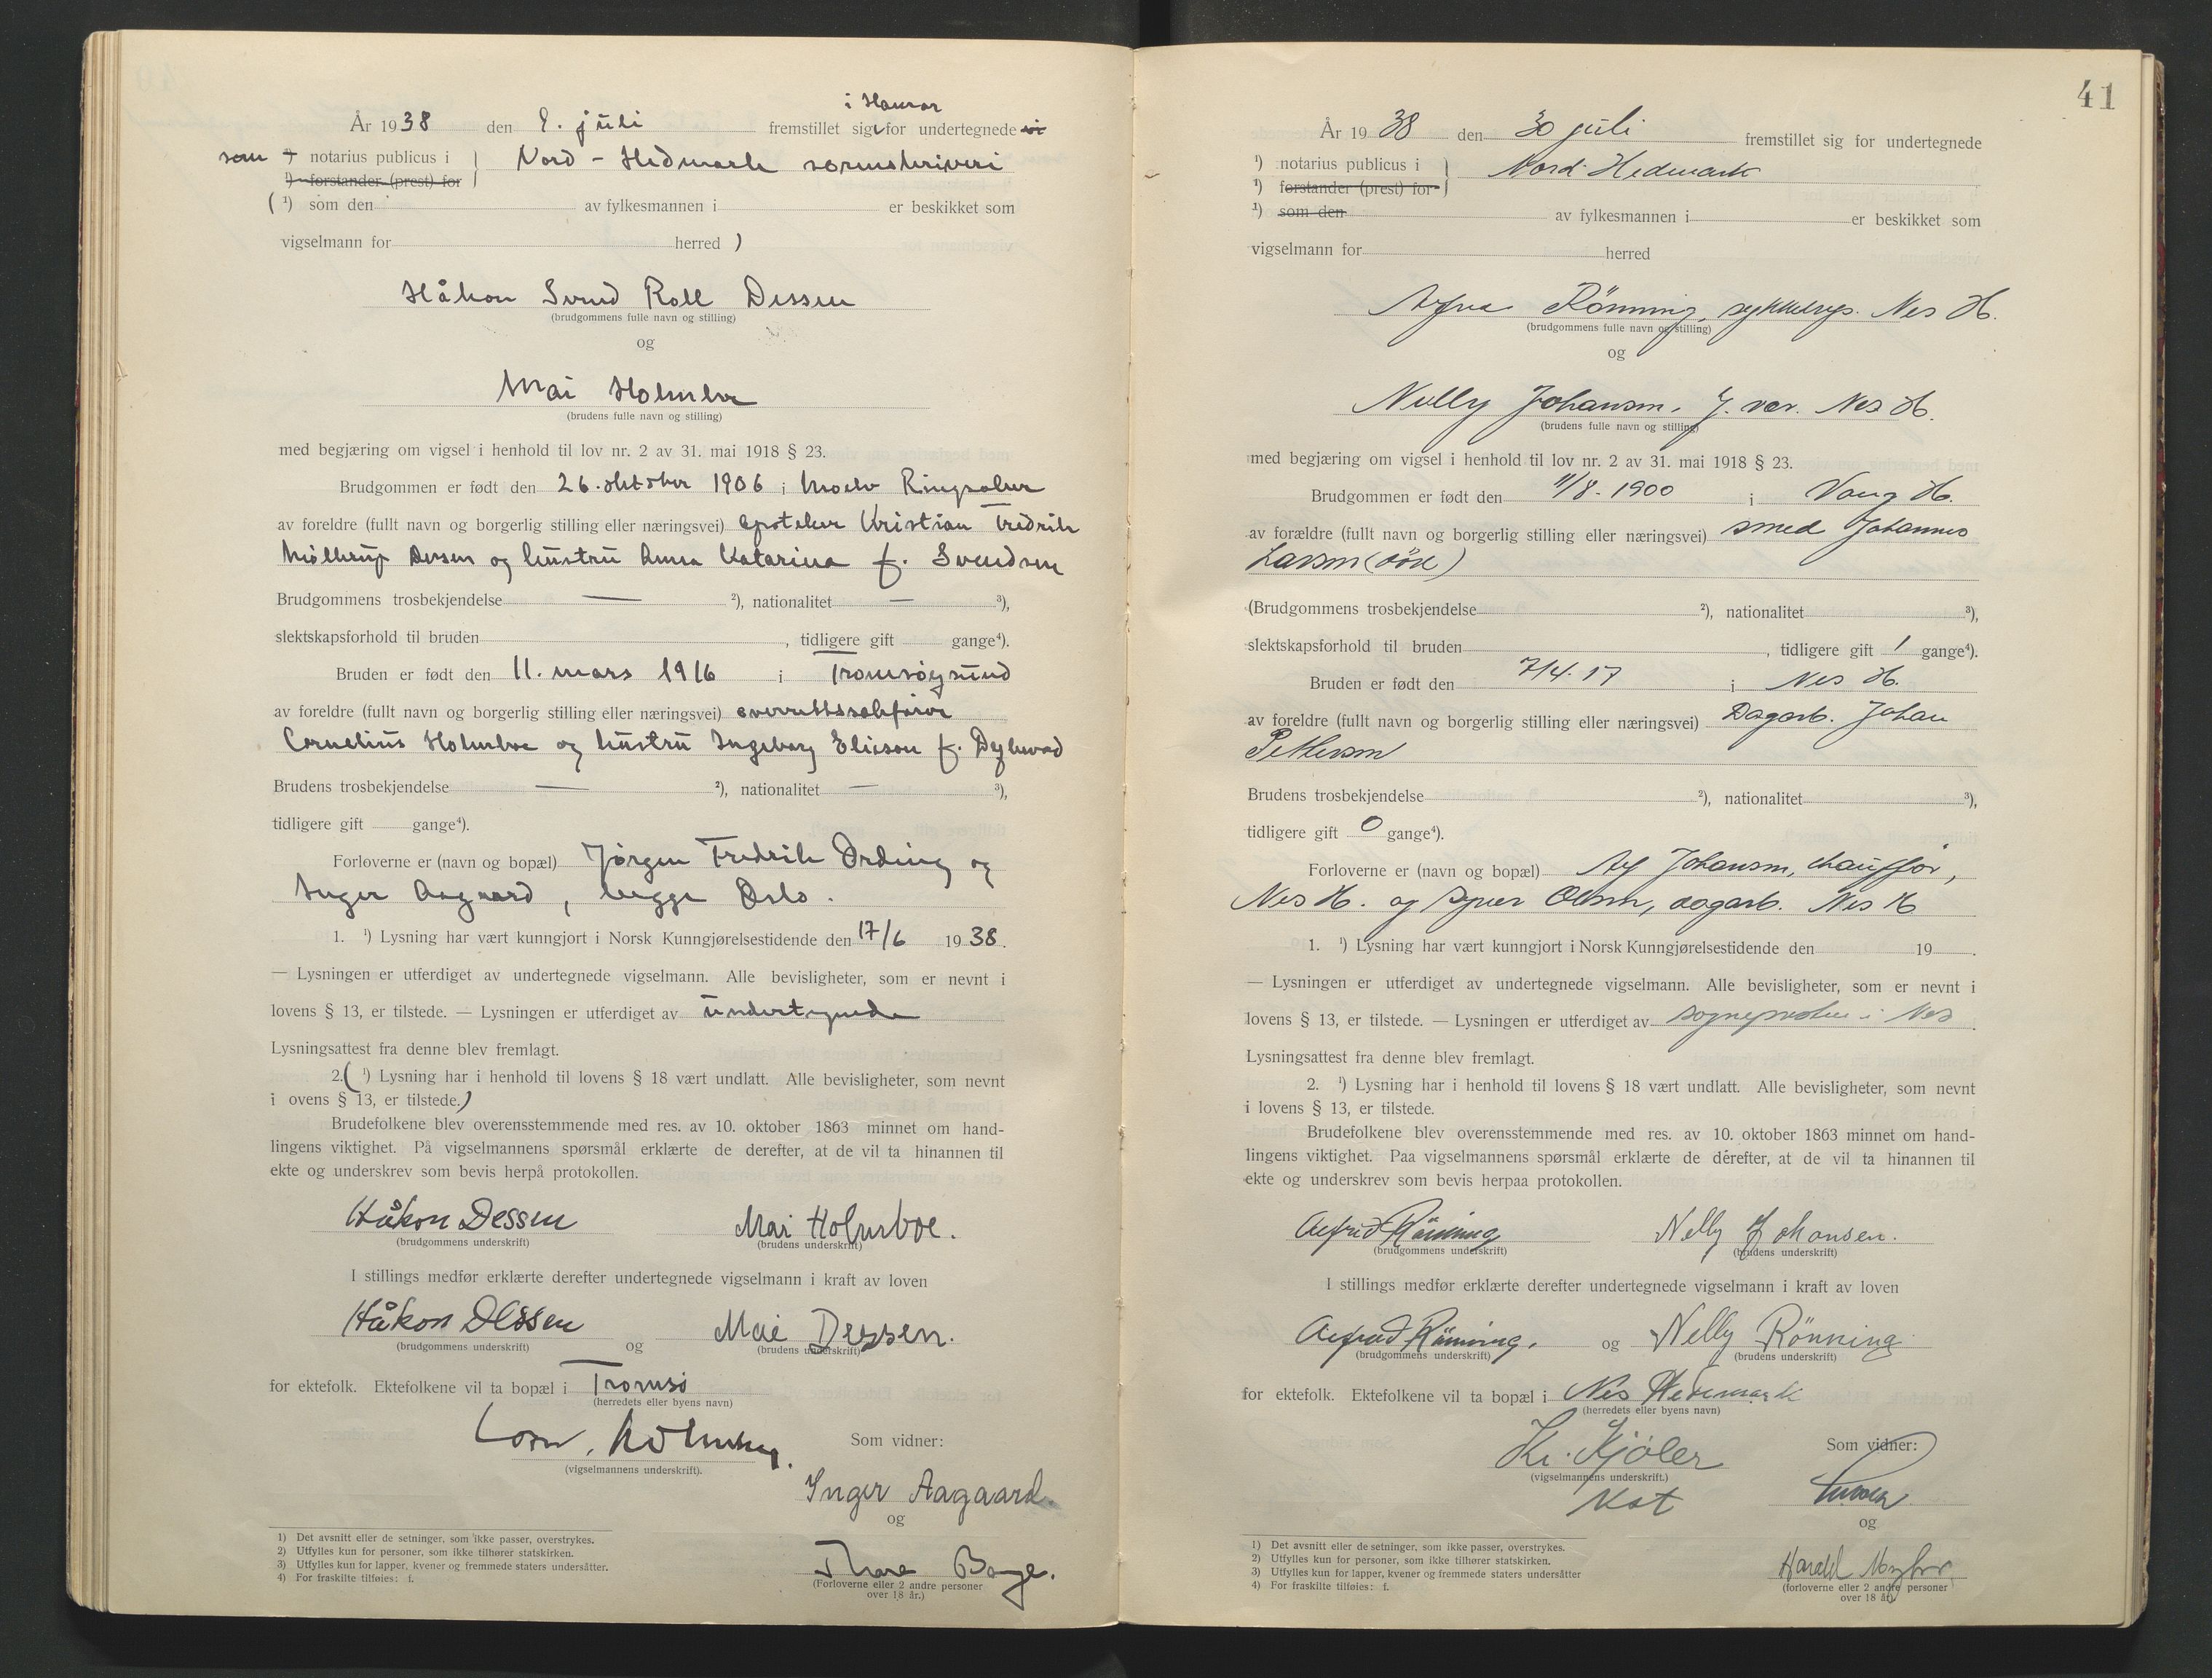 i Hamar
År 1938 den 9. juli fremstillet sig for undertegnede
som ¹) notarius publicus i Nord-Hedmark sorenskriveri
¹) forstander (prest) for
(¹) som den av fylkesmannen i er beskikket som
vigselmann for herred )
Håkon Svend Roll Dessen
(brudgommens fulle navn og stilling)
og
Mai Holmboe
(brudens fulle navn og stilling)
med begjæring om vigsel i henhold til lov nr. 2 av 31. mai 1918 § 23.
Brudgommen er født den 26. oktober 1906 i Moelv Ringsaker
av foreldre (fullt navn og borgerlig stilling eller næringsvei) apoteker Kristian Fredrik
Møllerup Dessen og hustru Anna Katarina f. Svendsen
Brudgommens trosbekjendelse — ²), nationalitet — ³),
slektskapsforhold til bruden , tidligere gift gange⁴).
Bruden er født den 11. mars 1916 i Tromsøysund
av foreldre (fullt navn og borgerlig stilling eller næringsvei) overrettssakfører
Cornelius Holmboe og hustru Ingeborg Elieson f.
Brudens trosbekjendelse — ²), nationalitet — ³),
tidligere gift gange⁴).
Forloverne er (navn og bopæl) Jørgen Fredrik Ording og
Inger Aagaard, begge Oslo.
1. ¹) Lysning har vært kunngjort i Norsk Kunngjørelsestidende den 17/6 1938.
— Lysningen er utferdiget av undertegnede vigselmann. Alle bevisligheter, som er nevnt i
lovens § 13, er tilstede. — Lysningen er utferdiget av undertegnede
Lysningsattest fra denne blev fremlagt.
2.( ¹) Lysning har i henhold til lovens § 18 vært undlatt. Alle bevisligheter, som nevnt
i ovens § 13, er tilstede.)
Brudefolkene blev overensstemmende med res. av 10. oktober 1863 minnet om hand-
lingens viktighet. På vigselmannens spørsmål erklærte de derefter, at de vil ta hinannen til
ekte og underskrev som bevis herpå protokollen.
Håkon Dessen Mai Holmboe.
(brudgommens underskrift) (brudens underskrift)
I stillings medfør erklærte derefter undertegnede vigselmann i kraft av loven
Håkon Dessen og Mai Dessen.
(brudgommens underskrift) (brudens underskrift)
for ektefolk. Ektefolkene vil ta bopæl i Tromsø
(herredets eller byens navn)
(vigselmannens underskrift).
Som vidner:
Inger Aagaard.
og
Thore Bang.
(Forloverne eller 2 andre personer
over 18 år.)
1) Det avsnitt eller de setninger, som ikke passer, overstrykes.
2) Utfylles kun for personer, som ikke tilhører statskirken.
3) Utfylles kun for lapper, kvener og fremmede staters undersåtter.
4) For fraskilte tilføies: f.
41
År 1938 den 30 juli fremstillet sig for undertegnede
¹) notarius publicus i Nord-Hedmark
¹) forstander (prest) for
¹) som den av fylkesmannen i er beskikket som
vigselmann for herred
Rønning, Nes H.
(brudgommens fulle navn og stilling)
og
Nelly Johansen, Nes H.
(brudens fulle navn og stilling)
med begjæring om vigsel i henhold til lov nr. 2 av 31. mai 1918 § 23.
Brudgommen er født den 11/8-1900 i Vang H.
av forældre (fullt navn og borgerlig stilling eller næringsvei) smed Johannes
Larsen (død)
(Brudgommens trosbekjendelse ²), nationalitet ³),
slektskapsforhold til bruden , tidligere gift 1 gange⁴).
Bruden er født den 7/4.17 i Nes H.
av foreldre (fullt navn og borgerlig stilling eller næringsvei) Dagarb. Johan
Pettersen
Brudens trosbekjendelse ²), nationalitet ³),
tidligere gift 0 gange⁴).
Forloverne er (navn og bopæl) Alf Johansen, chauffør,
Nes H. og Syver Olsen, dagarb. Nes H
1. ¹) Lysning har vært kunngjort i Norsk Kunngjørelsestidende den 19 .
— Lysningen er utferdiget av undertegnede vigselmann. Alle bevisligheter, som er nevnt i
lovens § 13, er tilstede. — Lysningen er utferdiget av sognepresten i Nes.
Lysningsattest fra denne blev fremlagt.
2. ¹) Lysning har i henhold til lovens § 18 vært undlatt. Alle bevisligheter, som nevnt
i lovens § 13, er tilstede.
Brudefolkene blev overensstemmende med res. av 10. oktober 1863 minnet om hand-
lingens viktighet. Paa vigselmannens spørsmål erklærte de dérefter, at de vil ta hinannen til
ekte og underskrev som bevis herpaa protokollen.
Alfrid Rønning Nelly Johansen.
(brudgommens underskrift) (brudens underskrift)
I stillings medfør erklærte derefter undertegnede vigselmann i kraft av loven
Alfrid Rønning. og Nelly Rønning
(brudgommens underskrift) (brudens underskrift)
for ektefolk. Ektefolkene vil ta bopæl i Nes Hedemark
(herredets eller byens navn)
Kr. Kjöler
(vigselmannens underskrift.)
Kst
Som vidner:
og
Harald
(forloverne eller 2 andre personer
over 18 år)
1) Det avsnitt eller de setninger, som ikke passer, overstrykes.
2) Utfylles kun for personer, som ikke tilhører statskirken.
3) Utfylles kun for lapper, kvener og fremmede staters undersåtter
4) For fraskilte tilføies: f.